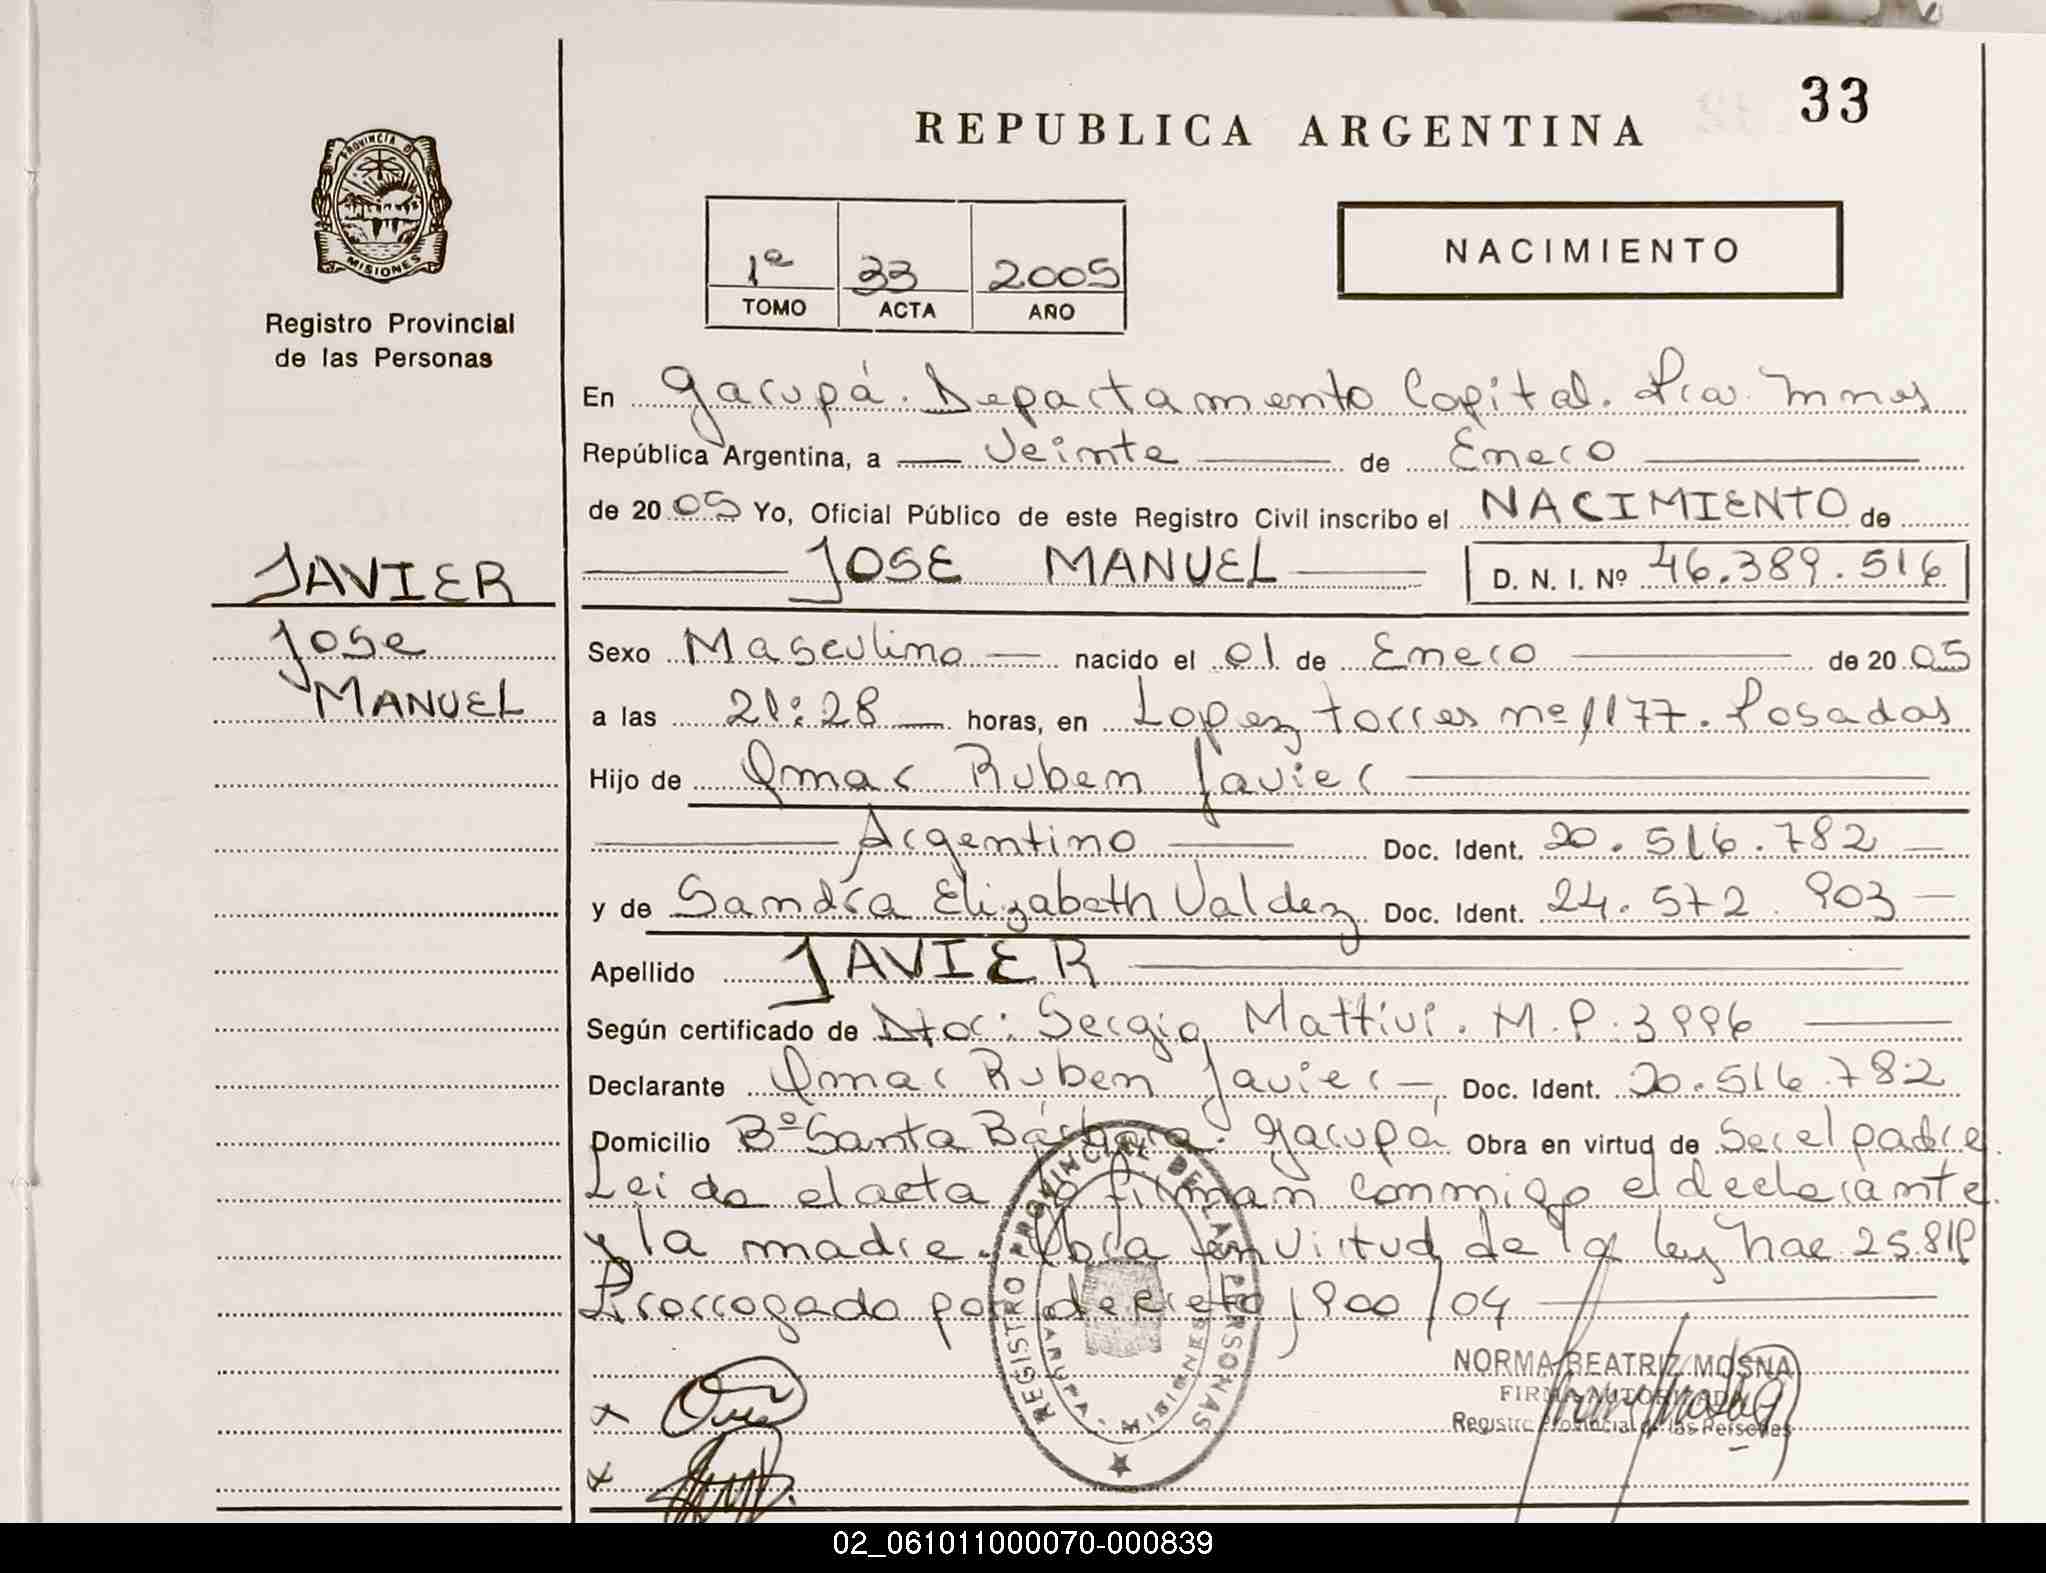 33
REPUBLICA ARGENTINA
PROVINCIA DE
MISIONES
Registro Provincial
de las Personas
1º 33 2005
TOMO ACTA AÑO
NACIMIENTO
En Garupá. Departamento Capital. Pcia. Mnes
República Argentina, a Veinte de Enero
de 2005 Yo, Oficial Público de este Registro Civil inscribo el NACIMIENTO de
JOSE MANUEL D. N. I. Nº 46.389.516
JAVIER
Jose
MANUEL
Sexo Masculino nacido el 01 de Enero de 2005
a las 21:28 horas, en Lopez torres nº 1177. Posadas
Hijo de Omar Ruben Javier
Argentino Doc. Ident. 20.516.782
y de Sandra Elizabeth Valdez Doc. Ident. 24.572.903
Apellido JAVIER
Según certificado de Dtor: Sergio Mattivi. M.P. 3996
Declarante Omar Ruben Javier Doc. Ident. 20.516.782
Domicilio Bº Santa Bárbara. Garupá Obra en virtud de Ser el padre.
Leida el acta la firman conmigo el declarante.
y la madre. Obra en virtud de la ley Nac. 25.819
Prorrogado por decreto 1900/04
REGISTRO PROVINCIAL DE LAS PERSONAS
GARUPA - MISIONES
NORMA BEATRIZ MOSNA
FIRMA AUTORIZADA
Registro Provincial de las Personas
02_061011000070-000839